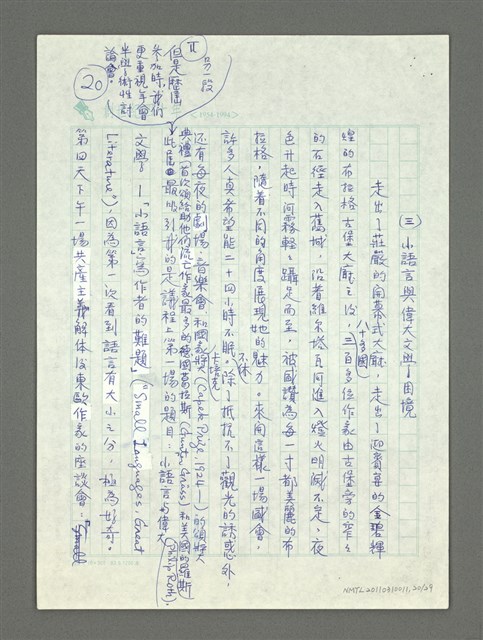 (三) 小語言與偉大文學之困境
走出了莊嚴的開幕式大廳，走出了迎賓宴的金碧輝
煌的布拉格古堡大廳之後，三百多位作家由古堡旁的窄窄
(八十多國)
的石徑走入舊城，沿著維爾塔瓦河進入燈火明滅不定，夜
色升起時河霧輕輕躡足而至，被盛讚為每一寸都美麗的布
拉格，隨着不同的角度展現她的魅力。來開這樣一場盛會，
許多人真希望能二十四小時不眠不休。除了抵抗不了觀光的誘惑外，
還有每夜的劇場、音樂會，和國家獎(卡培克 Capek Prize, 1924—)的頒獎
典禮(首次頒給助他們流亡作家最多的德國葛拉斯(Günter Grass)和美國的羅斯(Philip Roth)。
此處最吸引我的是議程上第一場的題目：小語言的偉大
文學？—「小語言」寫作者的難題」("Small Languages, Great
Literature")，因為第一次看到語言有大小之分，極為好奇。
第四天下午一場共產主義解體後東歐作家的座談會：
II 另一段
但是歷屆
參加時，我們
更重視年會
半學術性討
論會。
20
NMTL20110310011, 20/29